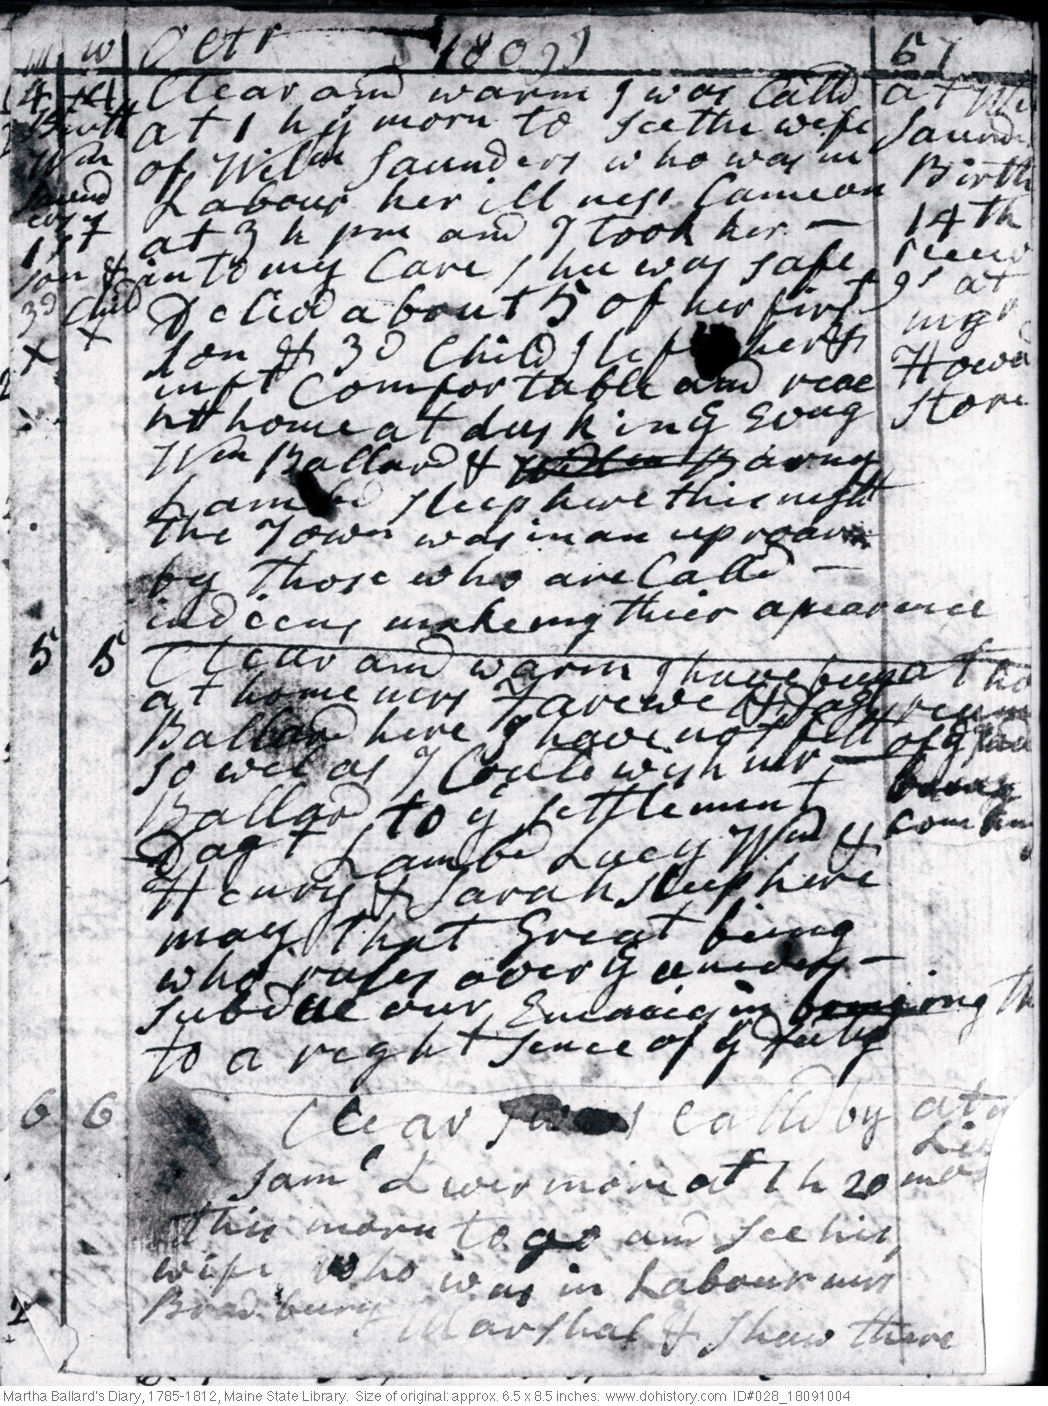 m w Octr 1809 51
4 4 Clear and warm I was Calld at Wm
Birth at 1 h ys morn to see the wife Saund
Wm of Wilm Saunders who was in Birth
Saund Labour her illness Came on 14th
ers 1st at 3 h pm and I took her — receiv
son & into my Care she was safe 9s at
3d Child Delivd about 5 of her first mr
x x son & 3d Child I left her & Howd
inft Comfortable and reac Store
ht home at dusk in ys Evng
Wm Ballard & Barny
Lambd sleep here this night
the Town was in an uproar
by those who are Calld —
indeens makeing thier apearence
5 5 Clear and warm I have been at ho
at home mrs Farewell & Dagt
Ballard here I have not felt of ys
so well as I Could wish mr —
Ballard to ys settlement
Dagt Lambd Lucy Wm & com
Henry & Sarah sleep here
may that Great being
who rules over ys univers —
subdue our Enemies in bring ing th
to a right sence of ys duty
6 6 Clear I was Calld by at
Saml Livermore at 1 h 20
this morn to go and see his
wife who was in Labour mrs
Bradbury Marshal & Shaw there
Martha Ballard's Diary, 1785-1812, Maine State Library. Size of original: approx. 6.5 x 8.5 inches. www.dohistory.com ID#028_18091004